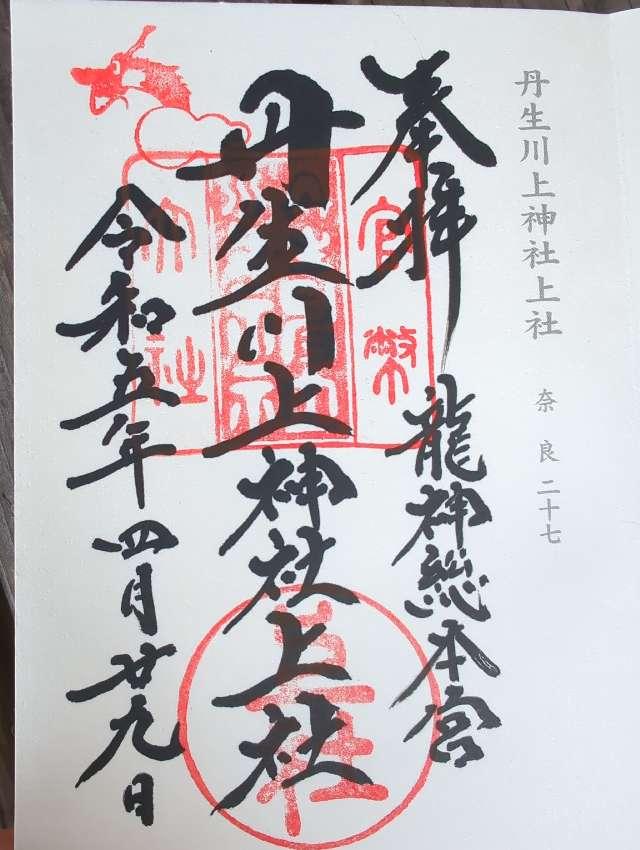 丹生川上神社上社 奈良二十七
奉拝 龍神総本宮
丹生川上神社上社
令和五年四月廿九日
官幣
大社
上社